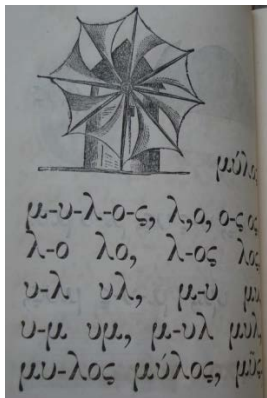 μύλος
μ-υ-λ-ο-ς, λ,ο, ο-ς ος
λ-ο λο, λ-ος λος
υ-λ υλ, μ-υ μυ
υ-μ υμ, μ-υλ μυλ,
μυ-λος μύλος, μῦς